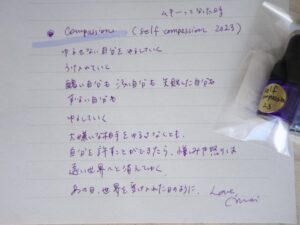 ムキーっとなった時
Compassion (self compassion 2023)
ゆるせない自分をゆるしていく
うけ入れていく
醜い自分も 汚い自分も 失敗した自分も
ずるい自分も
ゆるしていく
大嫌いな相手をゆるさなくとも、
自分を許すことができたら、憎しみや怒りは
遠い世界へと消えてゆく
あの日、世界を受け入れた日のように。
Love,
Self
compassion
23